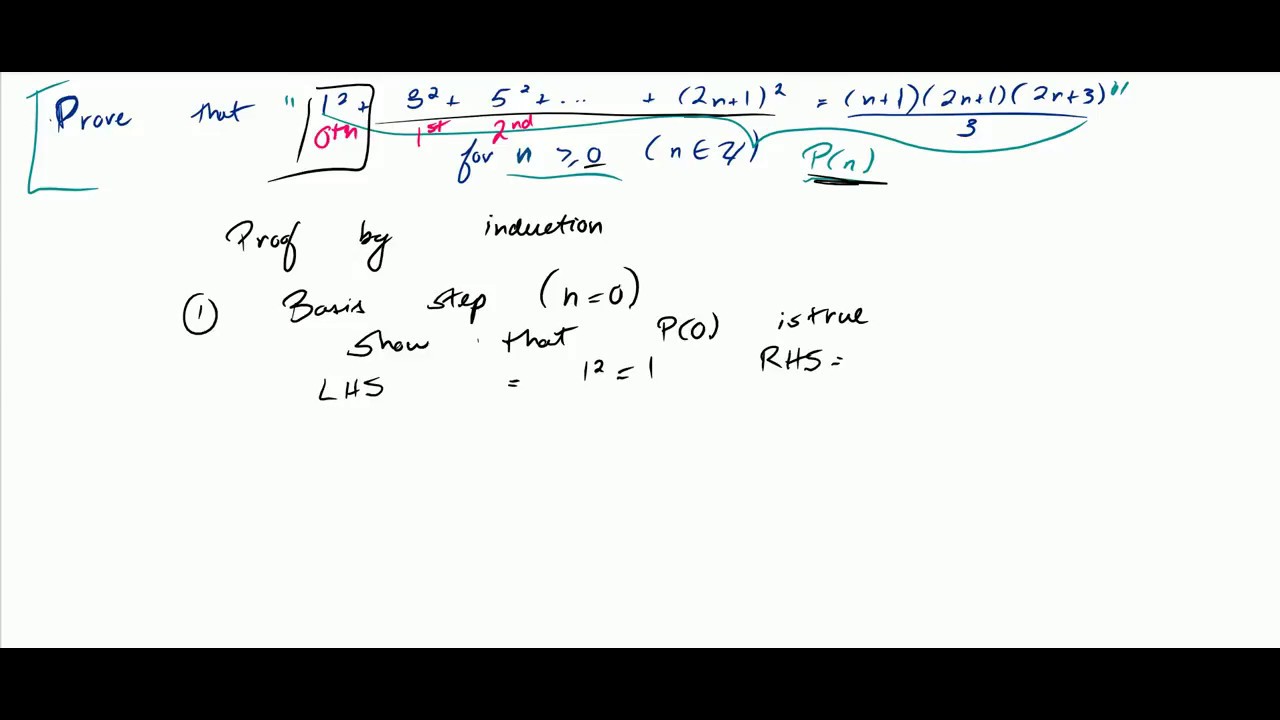 Prove that " 1² + 3² + 5² + ... + (2n+1)² = (n+1)(2n+1)(2n+3) "
3
0th 1st 2nd
for n ≥ 0 (n ∈ ℤ) P(n)
Proof by induction
① Basis step (n=0)
Show that P(0) is true
LHS = 1² = 1 RHS =